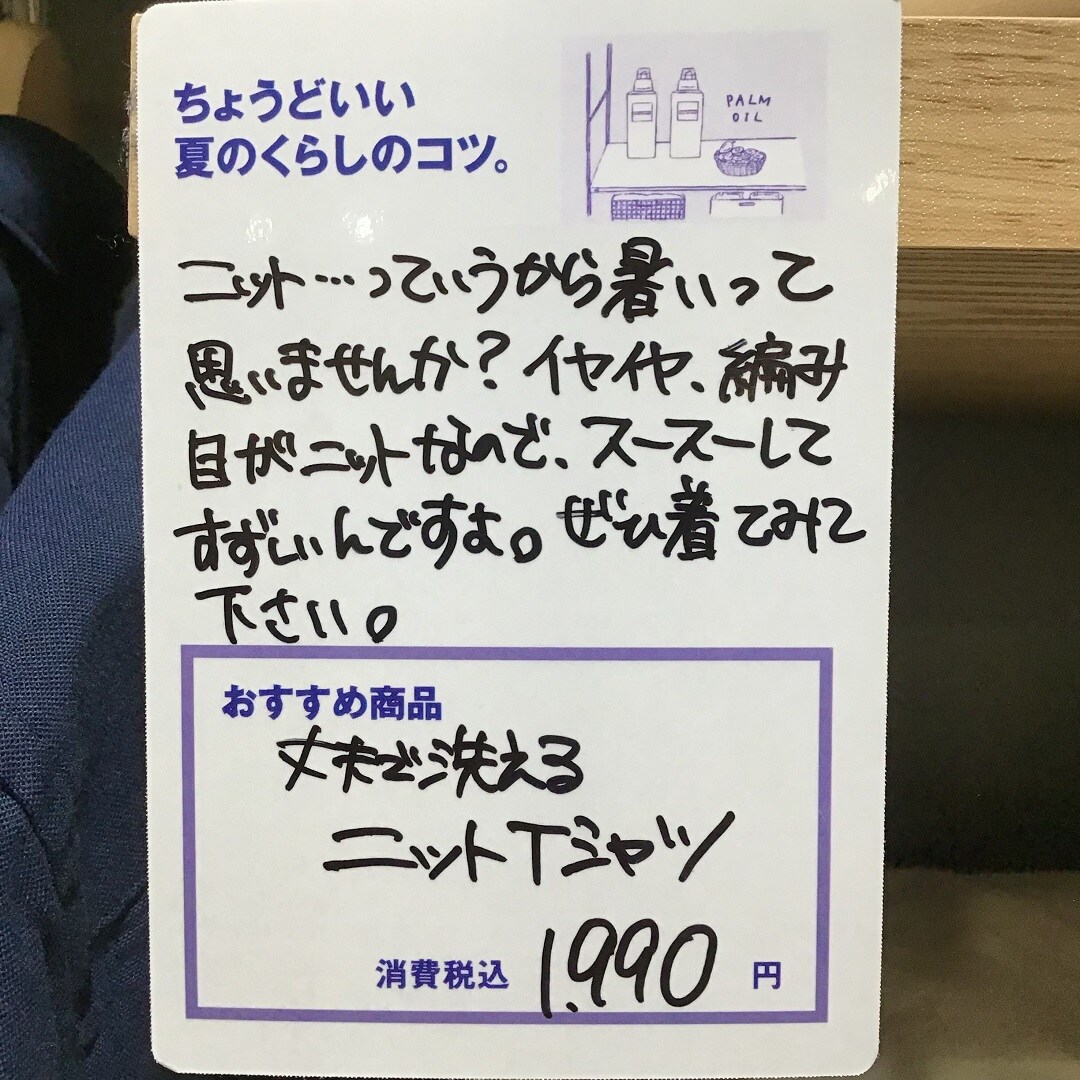 ちょうどいい
夏のくらしのコツ。
PALM
OIL
ニット…っていうから暑いって
思いませんか?イヤイヤ、編み
目がニットなので、スースーして
すずしいんですよ。ぜひ着てみて
下さい。
おすすめ商品
丈夫で洗える
ニットTシャツ
消費税込 1.990 円